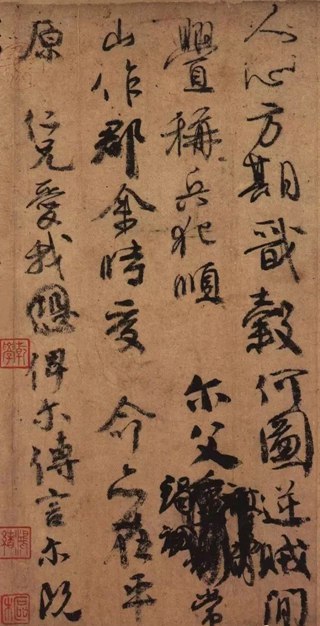 人心方期戩穀何圖逆賊閒
釁稱兵犯順尔父竭誠常
山作郡余時受命亦在平
原仁兄愛我恐俾尔傳言尔既